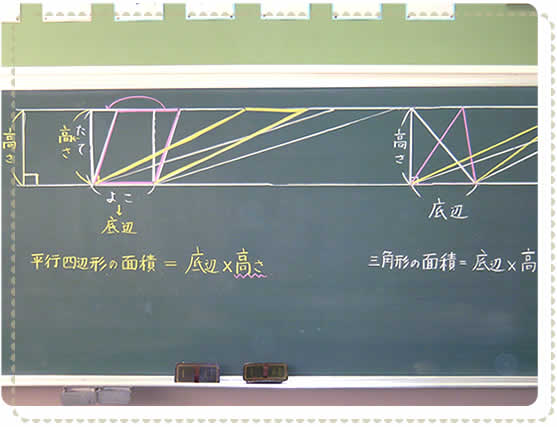 高さ
たて
高さ
よこ
↓
底辺
平行四辺形の面積 = 底辺×高さ
高さ
底辺
三角形の面積 = 底辺×高